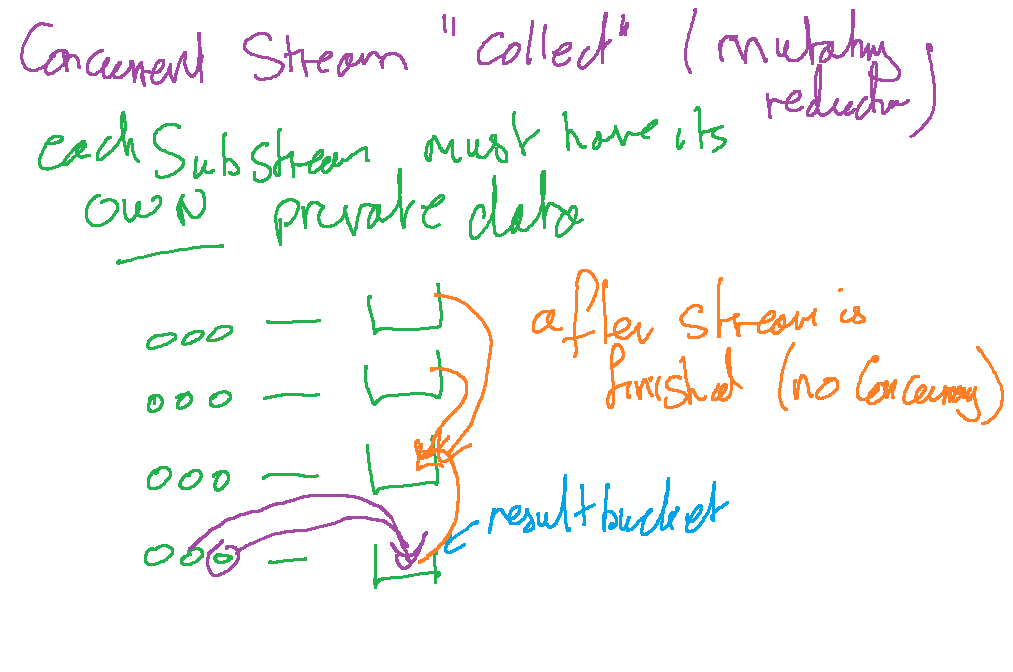 Concurrent Stream "collect" (mutating
reduction)
each Substream must have its
own private data
after stream is
finished (no Concurrency)
result bucket